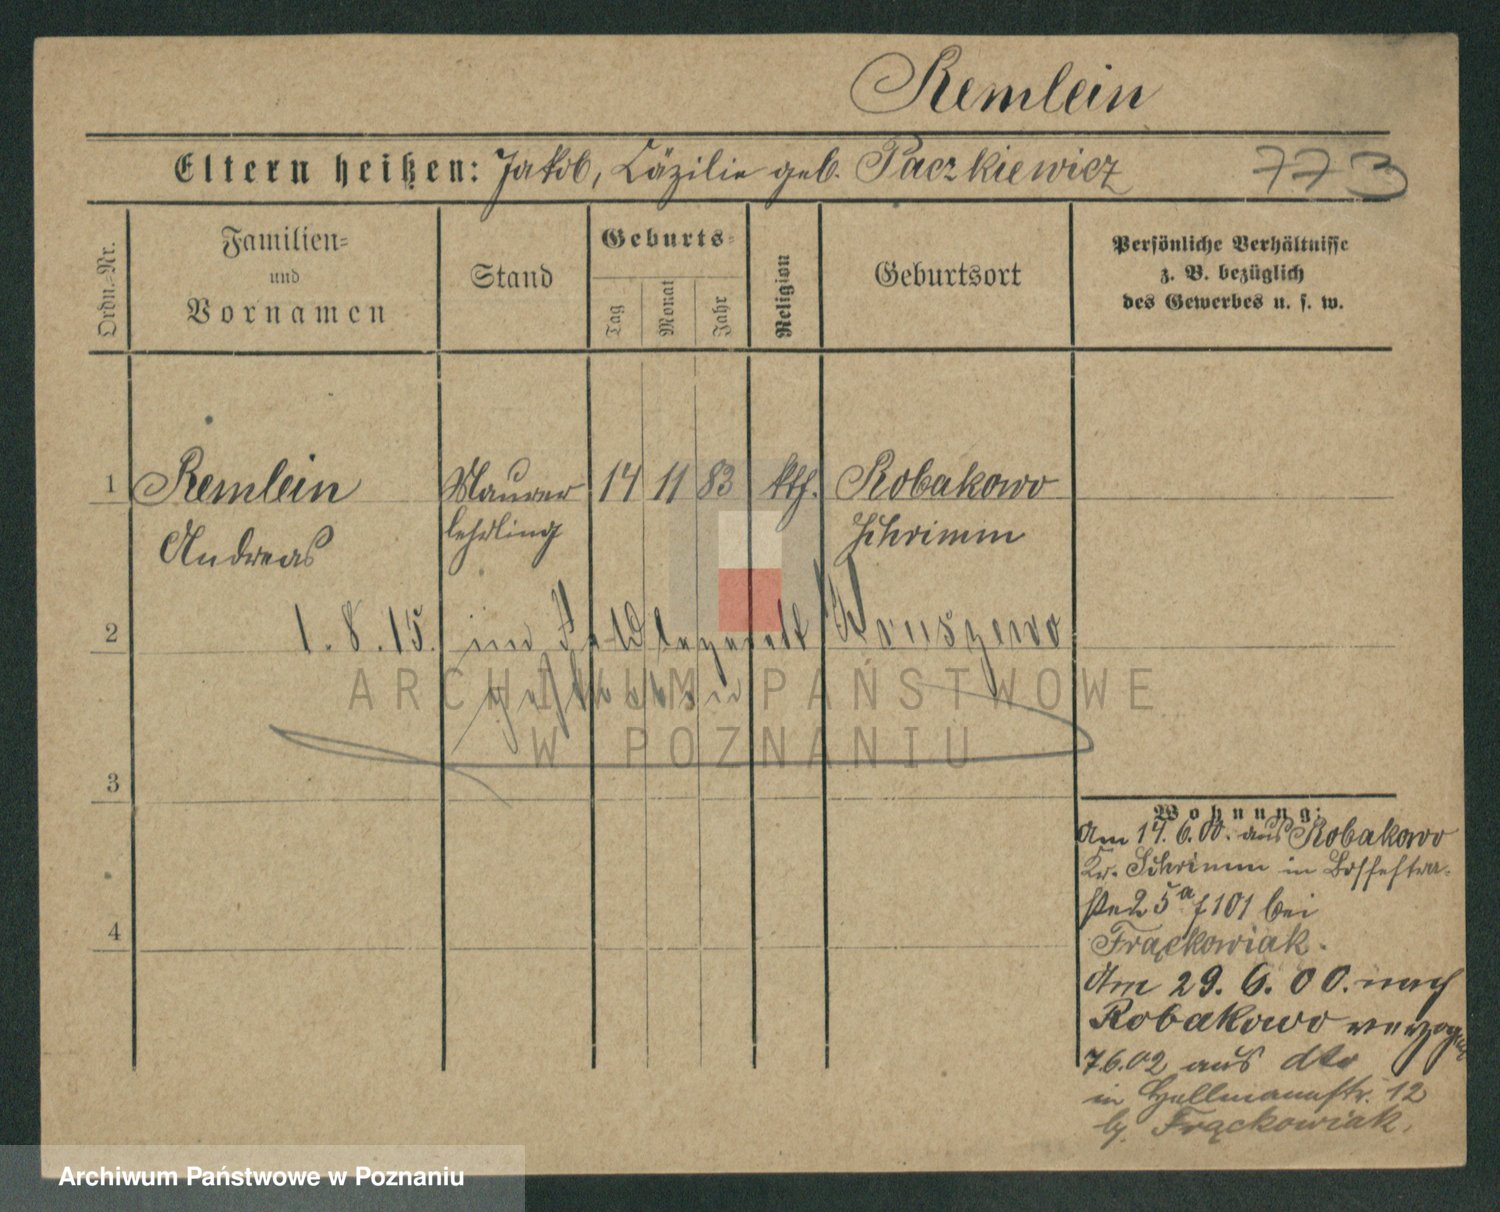 Remlein
Eltern heißen: Jakob, Cäzilie geb. Paczkiewicz 773
Ordn.-Nr.
Familien-
und
Vornamen
Stand
Geburts-
Tag
Monat
Jahr
Religion
Geburtsort
Persönliche Verhältnisse
z. B. bezüglich
des Gewerbes u. s. w.
1 Remlein Maurer 14 11 83 kth. Robakowo
Andreas lehrling Schrimm
2 1.8.15. im Feldlazarett Wruszewo
gestorben
3
4
Wohnung:
Am 14.6.00. aus Robakowo
Kr. Schrimm in
25a f 101 bei
Frąckowiak.
Am 29.6.00. nach
Robakowo verzogen
7.6.02 aus dto
in 12
b. Frąckowiak.
ARCHIWUM PAŃSTWOWE
W POZNANIU
Archiwum Państwowe w Poznaniu